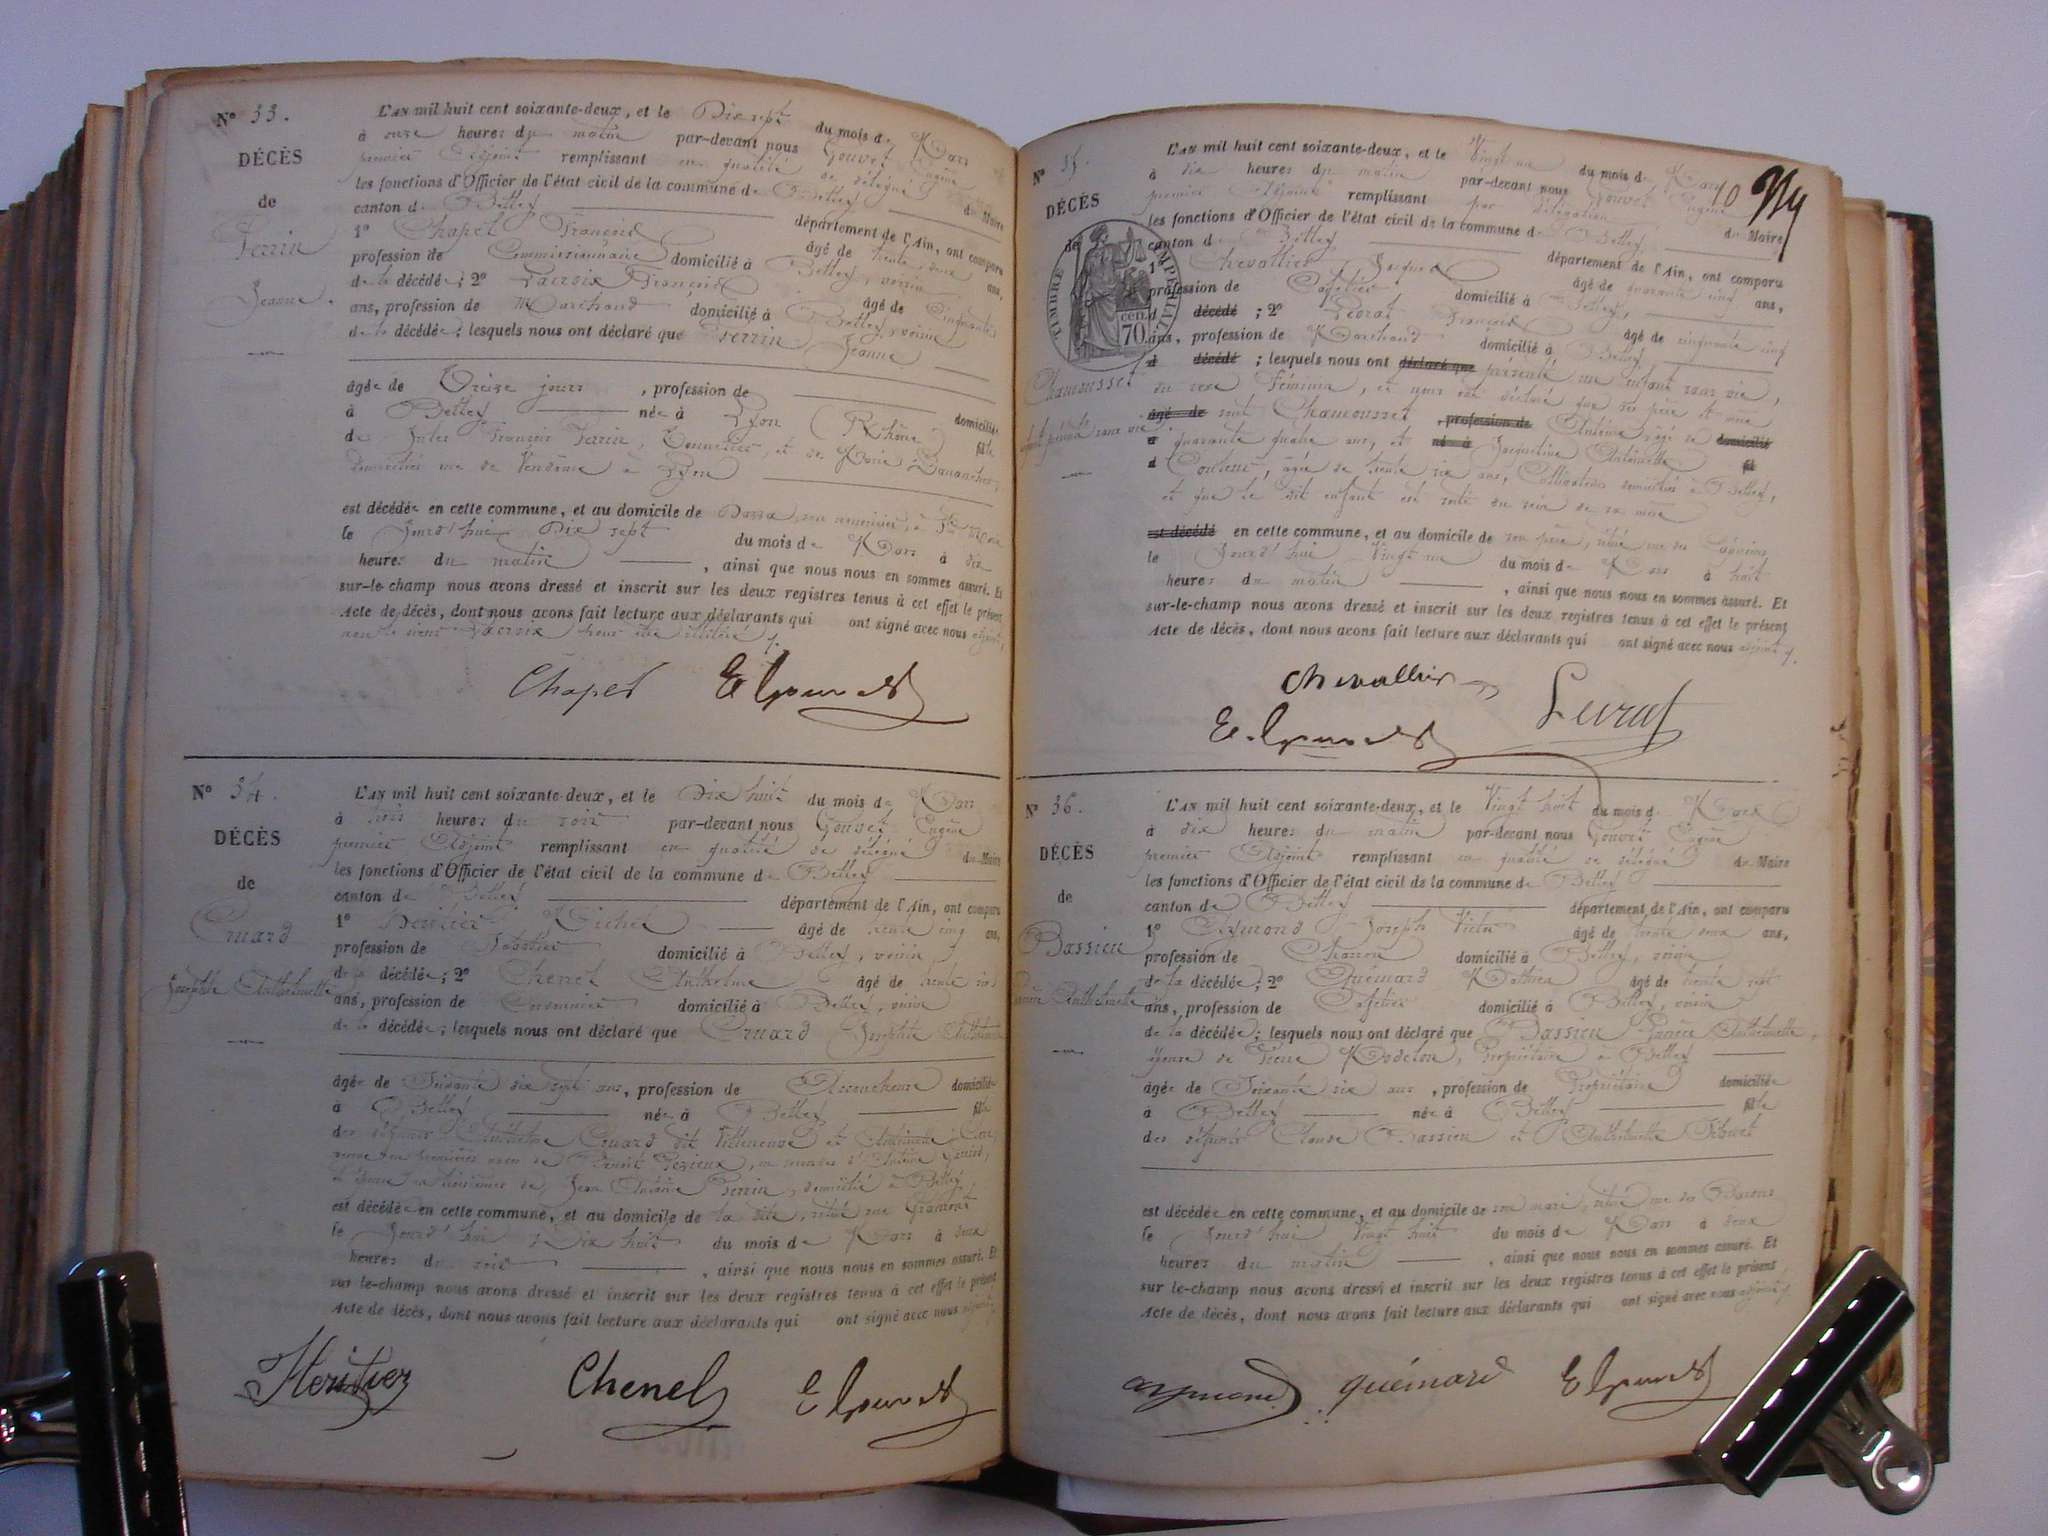 N° 33.
DÉCÈS
de
Perrin
Jeanne.
L'AN mil huit cent soixante-deux, et le Dix sept du mois de Mars
à onze heures du matin par-devant nous Gouvet Eugène
premier Adjoint remplissant en qualité de délégué du Maire
les fonctions d'Officier de l'état civil de la commune de Belley
canton de Belley département de l'Ain, ont comparu
1° Chapel François âgé de trente deux ans,
profession de Commissionnaire domicilié à Belley, voisin
de la décédée; 2° Lacroix François âgé de Cinquante
ans, profession de Marchand domicilié à Belley, voisin
de la décédée; lesquels nous ont déclaré que Perrin Jeanne
âgée de Treize jours, profession de domiciliée
à Belley née à Lyon (Rhône) fille
de Jules François Perrin, et de Marie
domiciliés rue de Vendôme à Lyon
est décédée en cette commune, et au domicile de
le Jourd'hui Dix sept du mois de Mars à dix
heures du matin, ainsi que nous nous en sommes assuré. Et
sur-le-champ nous avons dressé et inscrit sur les deux registres tenus à cet effet le présent
Acte de décès, dont nous avons fait lecture aux déclarants qui ont signé avec nous adjoint,
non le sieur Lacroix pour être illitéré
Chapel E Gouvet
N° 34.
DÉCÈS
de
Cruard
Josephte Anthelmette
L'AN mil huit cent soixante-deux, et le Dix huit du mois de Mars
à trois heures du soir par-devant nous Gouvet Eugène
premier Adjoint remplissant en qualité de délégué du Maire
les fonctions d'Officier de l'état civil de la commune de Belley
canton de Belley département de l'Ain, ont comparu
1° Héritier Michel âgé de trente cinq ans,
profession de Sabotier domicilié à Belley, voisin
de la décédée; 2° Chenel Anthelme âgé de trente six
ans, profession de Cordonnier domicilié à Belley, voisin
de la décédée; lesquels nous ont déclaré que Cruard Josephte Anthelmette
âgée de Soixante dix sept ans, profession de Accoucheuse domiciliée
à Belley née à Belley fille
des défunts Anthelme Cruard dit Villeneuve et Antoinette
Benoit
de Jean Antoine Perrin, domicilié à Belley
est décédée en cette commune, et au domicile de la dite, situé rue
le Jourd'hui dix huit du mois de Mars à deux
heures du soir, ainsi que nous nous en sommes assuré. Et
sur le-champ nous avons dressé et inscrit sur les deux registres tenus à cet effet le présent
Acte de décès, dont nous avons fait lecture aux déclarants qui ont signé avec nous adjoint
Héritier Chenel E Gouvet
N° 35.
DÉCÈS
de
TIMBRE IMPÉRIAL
70 cen.
Chamousset
enfant présenté sans vie.
10
L'AN mil huit cent soixante-deux, et le Vingt un du mois de Mars
à dix heures du matin par-devant nous Gouvet Eugène
premier Adjoint remplissant par délégation du Maire
les fonctions d'Officier de l'état civil de la commune de Belley
canton de Belley département de l'Ain, ont comparu
1° Chevallier Jacques âgé de quarante cinq ans,
profession de Cafetier domicilié à Belley,
d décédé; 2° Levrat François âgé de cinquante cinq
ans, profession de Marchand domicilié à Belley,
d décédé; lesquels nous ont déclaré que présenté un enfant sans vie,
du sexe Féminin, et nous ont déclaré que ses père et mère
âgé de sont Chamousset, profession de Antoine, âgé de domicilié
à quarante quatre ans, et né à Jacqueline Antoinette fil
d âgée de trente six ans, Cultivateurs domiciliés à Belley,
et que le dit enfant est sorti du sein de sa mère
est décédé en cette commune, et au domicile de son père, situé rue des
le Jourd'hui Vingt un du mois de Mars à huit
heures du matin, ainsi que nous nous en sommes assuré. Et
sur-le-champ nous avons dressé et inscrit sur les deux registres tenus à cet effet le présent
Acte de décès, dont nous avons fait lecture aux déclarants qui ont signé avec nous adjoint
Chevallier Levrat
E. Gouvet
N° 36.
DÉCÈS
de
Bassieu
Anthelmette
L'AN mil huit cent soixante-deux, et le Vingt huit du mois d Mars
à dix heures du matin par-devant nous Gouvet Eugène
premier Adjoint remplissant en qualité de délégué du Maire
les fonctions d'Officier de l'état civil de la commune de Belley
canton de Belley département de l'Ain, ont comparu
1° Aymond Joseph Victor âgé de trente deux ans,
profession de Charron domicilié à Belley, voisin
de la décédée; 2° Quémard Mathieu âgé de trente sept
ans, profession de Cafetier domicilié à Belley, voisin
de la décédée; lesquels nous ont déclaré que Bassieu Anthelmette,
épouse de Pierre Modelon, Propriétaire à Belley
âgée de Soixante six ans, profession de Propriétaire domiciliée
à Belley née à Belley fille
des défunts Claude Bassieu et Anthelmette
est décédée en cette commune, et au domicile de son mari, situé rue des Barons
le Jourd'hui Vingt huit du mois de Mars à deux
heures du matin, ainsi que nous nous en sommes assuré. Et
sur le-champ nous avons dressé et inscrit sur les deux registres tenus à cet effet le présent
Acte de décès, dont nous avons fait lecture aux déclarants qui ont signé avec nous adjoint
aymond quémard E Gouvet